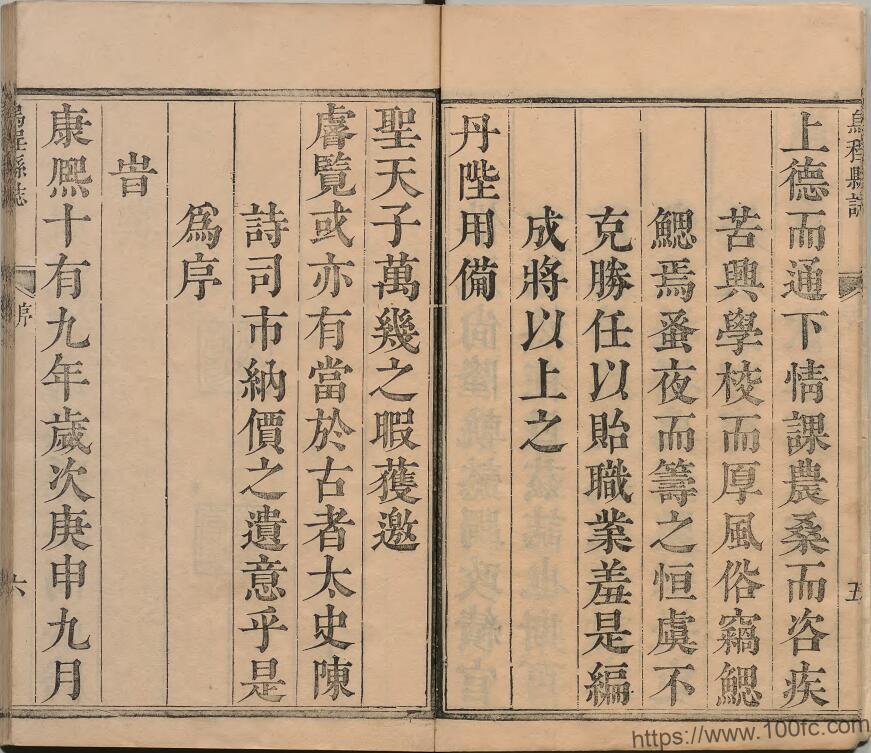 上德而通下情課農桑而咨疾
苦興學校而厚風俗竊鰓
鰓焉蚤夜而籌之恒虞不
克勝任以貽職業羞是編
成將以上之
丹陛用備
聖天子萬幾之暇蒦邀
睿覽或亦有當於古者太史陳
詩司市納價之遺意乎是
為序
旹
康熙十有九年歲次庚申九月
烏程縣誌
序
五
六
https://www.100fc.com